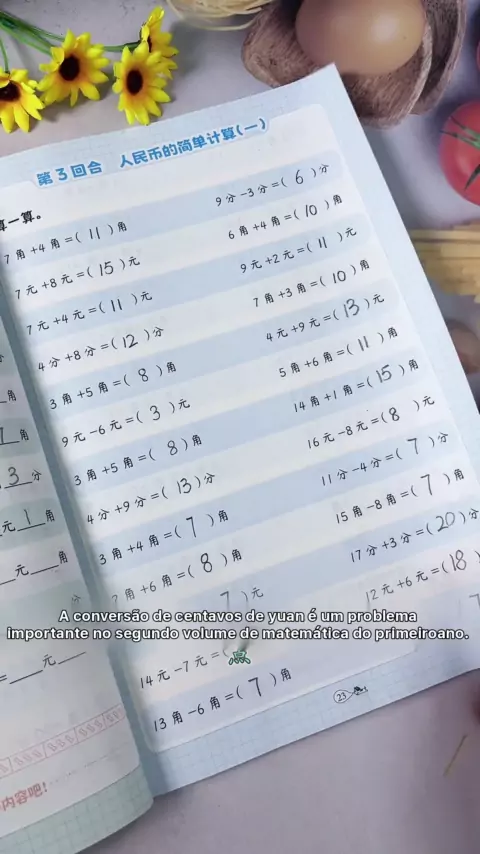 第3回合 人民币的简单计算(一)
算一算。
7角+4角=(11)角
9分-3分=(6)分
7元+8元=(15)元
6角+4角=(10)角
7元+4元=(11)元
9元+2元=(11)元
4分+8分=(12)分
7角+3角=(10)角
3角+5角=(8)角
4元+9元=(13)元
9元-6元=(3)元
5角+6角=(11)角
3角+5角=(8)角
14角+1角=(15)角
4分+9分=(13)分
16元-8元=(8)元
3角+4角=(7)角
11分-4分=(7)分
2角+6角=(8)角
15角-8角=(7)角
7)元
17分+3分=(20)分
14元-7元=(
12元+6元=(18)
13角-6角=(7)角
7
23
分
角
角
3分
元1角
元 角
= 元
内容吧!
A conversão de centavos de yuan é um problema
importante no segundo volume de matemática do primeiroano.